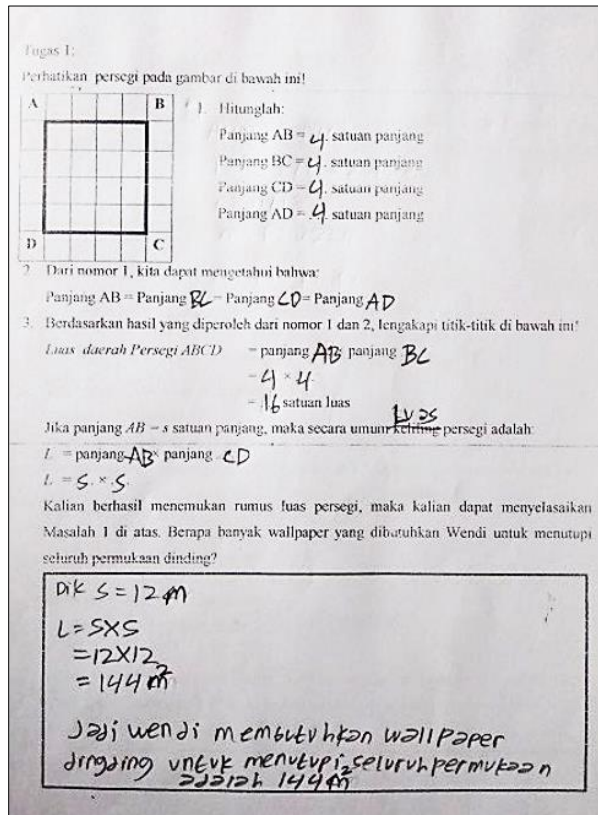 Tugas 1:
Perhatikan persegi pada gambar di bawah ini!
A B
D C
1. Hitunglah:
Panjang AB = 4. satuan panjang
Panjang BC = 4. satuan panjang
Panjang CD = 4. satuan panjang
Panjang AD = .4. satuan panjang
2. Dari nomor 1, kita dapat mengetahui bahwa:
Panjang AB = Panjang BC = Panjang CD = Panjang AD
3. Berdasarkan hasil yang diperoleh dari nomor 1 dan 2, lengakapi titik-titik di bawah ini!
Luas daerah Persegi ABCD = panjang AB × panjang BC
= 4 × 4.
= .16 satuan luas
Luas
Jika panjang AB = s satuan panjang, maka secara umum keliling persegi adalah:
L = panjang AB × panjang CD
L = S. × .S.
Kalian berhasil menemukan rumus luas persegi, maka kalian dapat menyelasaikan
Masalah 1 di atas. Berapa banyak wallpaper yang dibutuhkan Wendi untuk menutupi
seluruh permukaan dinding?
Dik S = 12 m
L = S X S
= 12 X 12
= 144 m²
Jadi wendi membutuhkan wallpaper
dingding untuk menutupi seluruh permukaan
adalah 144 m²